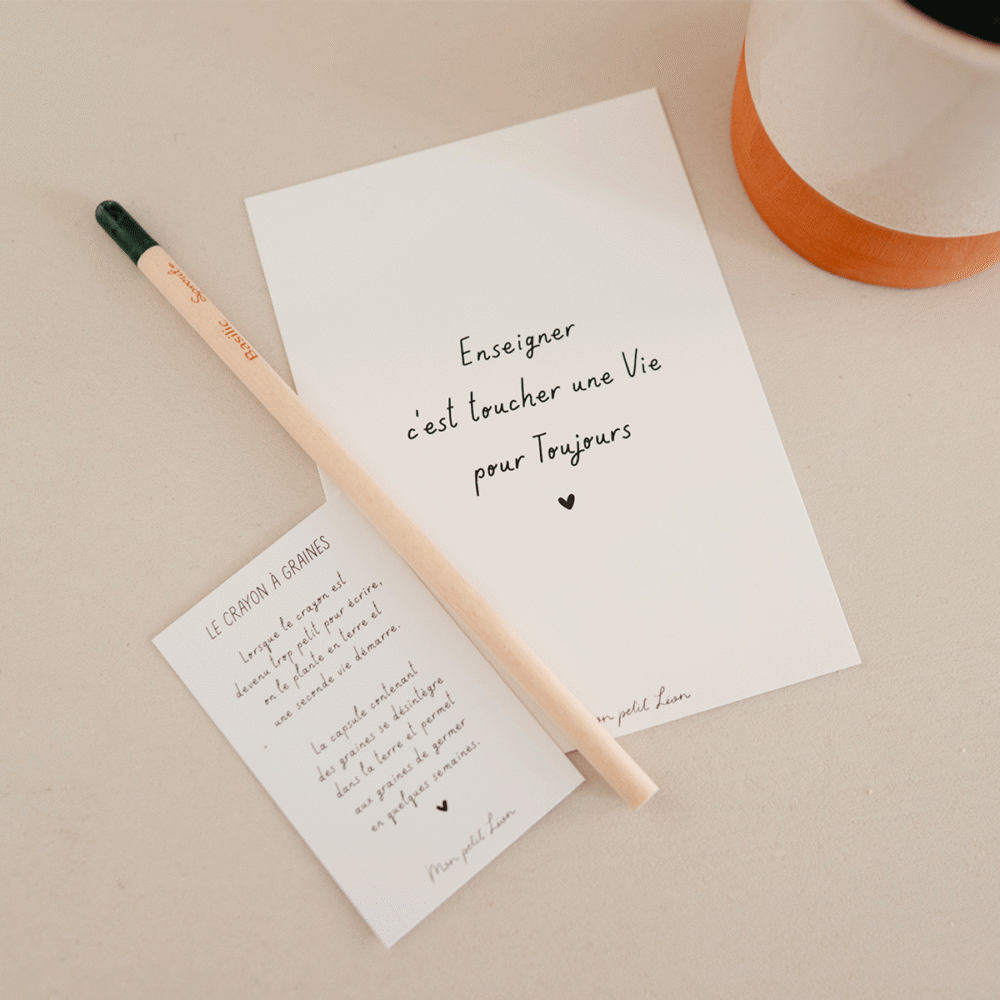 Enseigner
c'est toucher une Vie
pour Toujours
on petit Léon
Sprout
Basilic
LE CRAYON À GRAINES
Lorsque le crayon est
devenu trop petit pour écrire,
on le plante en terre et
une seconde vie démarre.
La capsule contenant
des graines se désintègre
dans la terre et permet
aux graines de germer
en quelques semaines.
Mon petit Léon